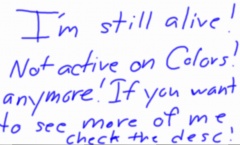 I'm still alive!
Not active on Colors!
anymore! If you want
to see more of me
check the desc!